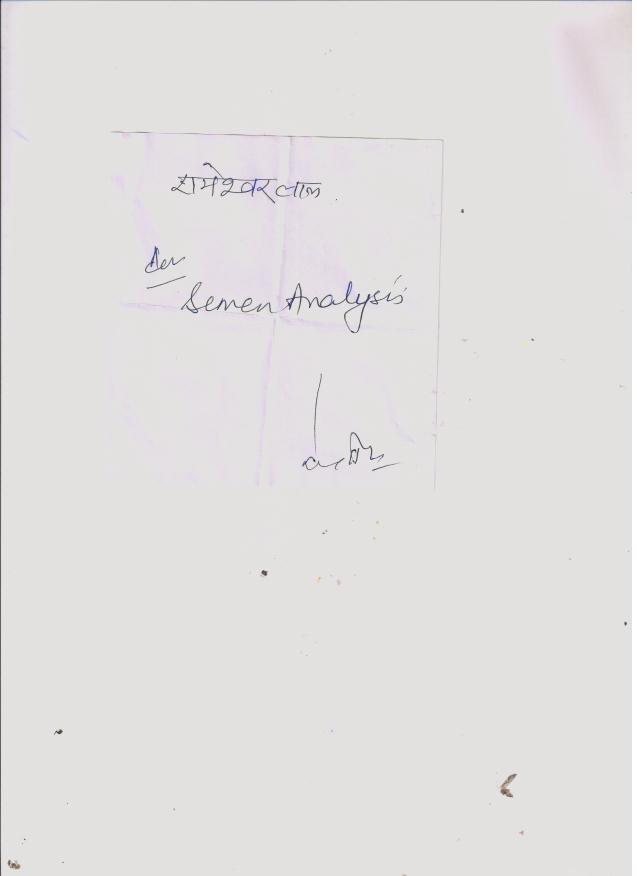 रामेश्वर लाल
Semen Analysis